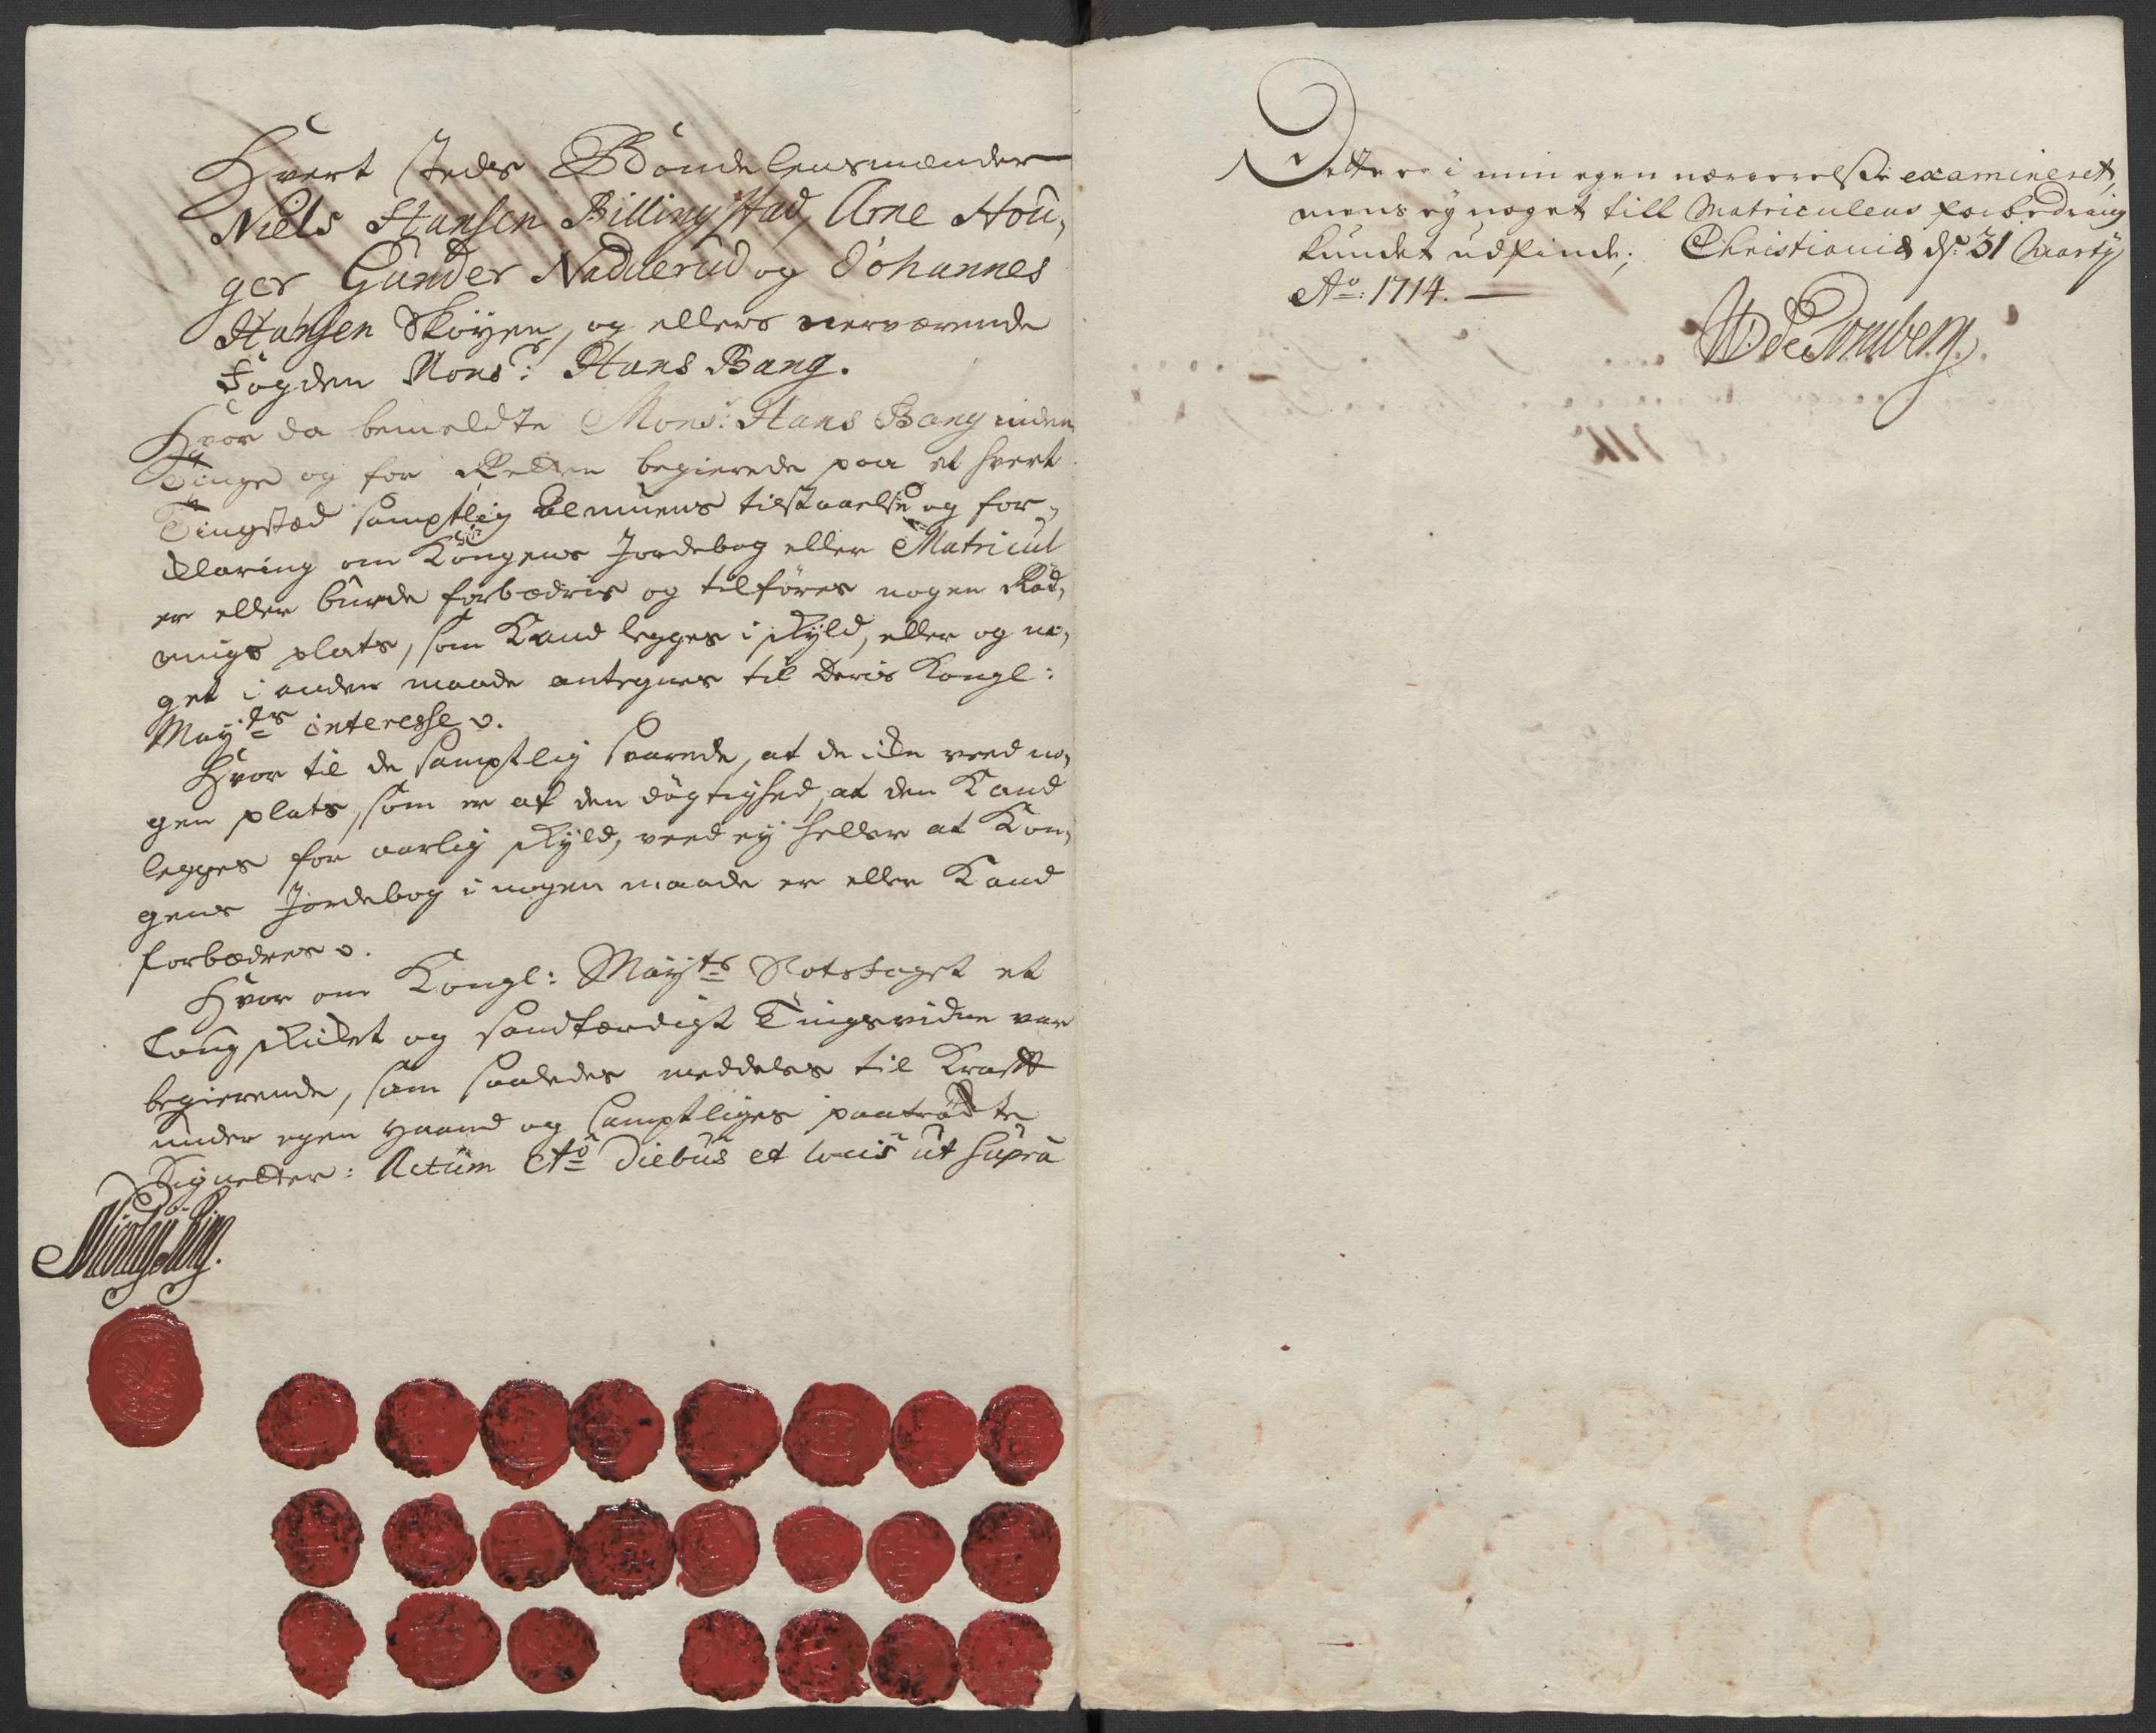 Hvert steds Bönde lensmænder
Niels Hansen Billingstad, Arne Hou,
ger, Gunder Nadderud og Johannes
Hansen Skøyen, og ellers nerværende
Fogden Mons:r Hans Bang.
Hvor da bemeldte Mons:r Hans Bang inden
Tinge og for Retten begierede paa et hvert
Tingstæd samptlig Almuens tilstaaelse og for-
klaring om Kongens Jordebog eller Matricul
er eller burde forbædris og tilføres nogen Röd,
nings plats, som Kand legges i skyld, eller og no,
get i anden maade antegnes til Deris Kongl:
May:ts interesse v.
Hvor til de samptlig svarede, at de icke veed no,
gen plats, som er af den dögtighed, at den Kand
legges for aarlig skyld, veed ey heller at Kon,
gens Jordebog i nogen maade er eller Kand
forbædres v.
Hvor om Kongl: May:ts Fogt et
Laugskicket og sandfærdigt Tingsvidne var
begierende, som saaledes meddeles til Krafft
under egen Haand og samptliges paatröckte
Signetter: Actum Ao Diebus et locis ut supra
Nicolay Ring.
Dette er i min egen nærværelse examineret,
mens ey noget till Matriculens forbedring
kundet udfinde; Christiania d: 31 Marty
Ao: 1714.
W: de Tonsberg.